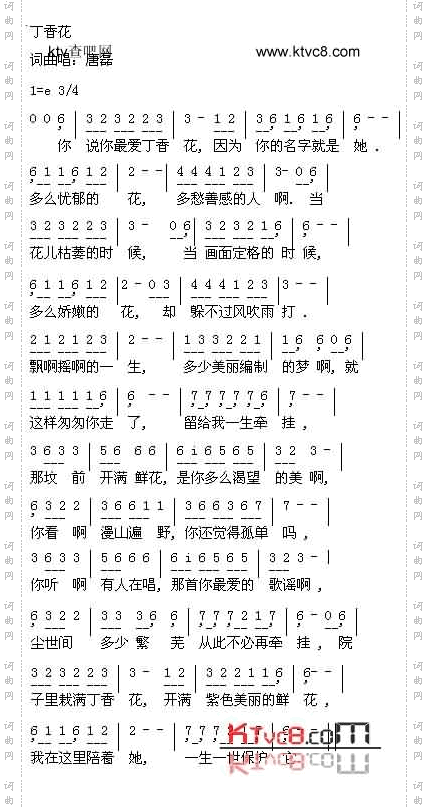 丁香花
ktv查吧网 www.ktvc8.com
词曲唱：唐磊
1=e 3/4
0 0 6, | 3 2 3 2 2 3 | 3 - 1 2 | 3 6, 1 6, 1 6, | 6, - - |
你 说你最爱丁香 花, 因为 你的名字就是 她 .
6, 1 1 6, 1 2 | 2 - - | 4 4 4 1 2 3 | 3 - 0 6, |
多么忧郁的 花, 多愁善感的人 啊. 当
3 2 3 2 2 3 | 3 - 0 6, | 3 2 3 2 1 6, | 6, - - |
花儿枯萎的时 候, 当 画面定格的 时 候,
6, 1 1 6, 1 2 | 2 - 0 3 | 4 4 4 1 2 3 | 3 - - |
多么娇嫩的 花, 却 躲不过风吹雨 打 .
2 1 2 1 2 3 | 2 - - | 1 3 3 2 2 1 | 1 6, 6, 0 6, |
飘啊摇啊的一 生, 多少美丽编制 的梦 啊, 就
1 1 1 1 1 6, | 6, - - | 7, 7, 7, 7, 7, 6, | 7, - - |
这样匆匆你走 了, 留给我一生牵 挂 ,
3 6 3 3 | 5 6 6 6 | 6 i 6 5 6 5 | 3 2 3 - |
那坟 前 开满 鲜花, 是你多么渴望 的美 啊,
6, 3 2 2 | 3 6 6 1 1 | 3 6 6 3 6 7 | 7 - - |
你看 啊 漫山遍 野, 你还觉得孤单 吗 ,
3 6 3 3 | 5 6 6 6 | 6 i 6 5 6 5 | 3 2 3 - |
你听 啊 有人在唱, 那首你最爱的 歌谣啊 ,
6, 3 2 2 | 3 3 3 6, 6, | 7, 7, 7, 2 1 7, | 6, - 0 6, |
尘世间 多少 繁 芜 从此不必再牵 挂 , 院
3 2 3 2 2 3 | 3 - 1 2 | 3 2 2 1 1 6, | 6, - - |
子里栽满丁香 花, 开满 紫色美丽的鲜 花 ,
6, 1 1 6, 1 2 | 2 - - | 7, 7, 7,
我在这里陪着 她, 一生一世保护
KTvc8.com